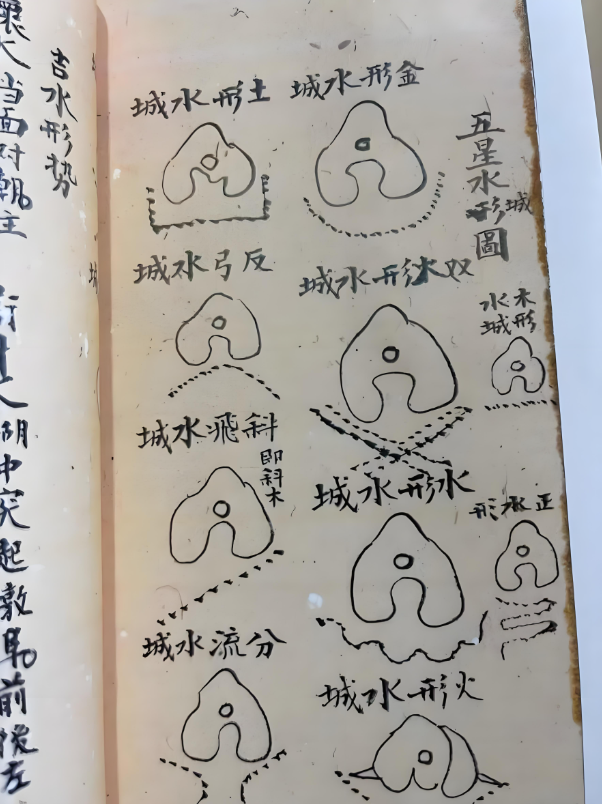 五星水城形圖
金形水城
土形水城
木形
水城
双木形水城
反弓水城
正水形
水形水城
斜飛水城
即斜木
火形水城
分流水城
吉水形势
当面对朝主
湖中突起墩阜前後左